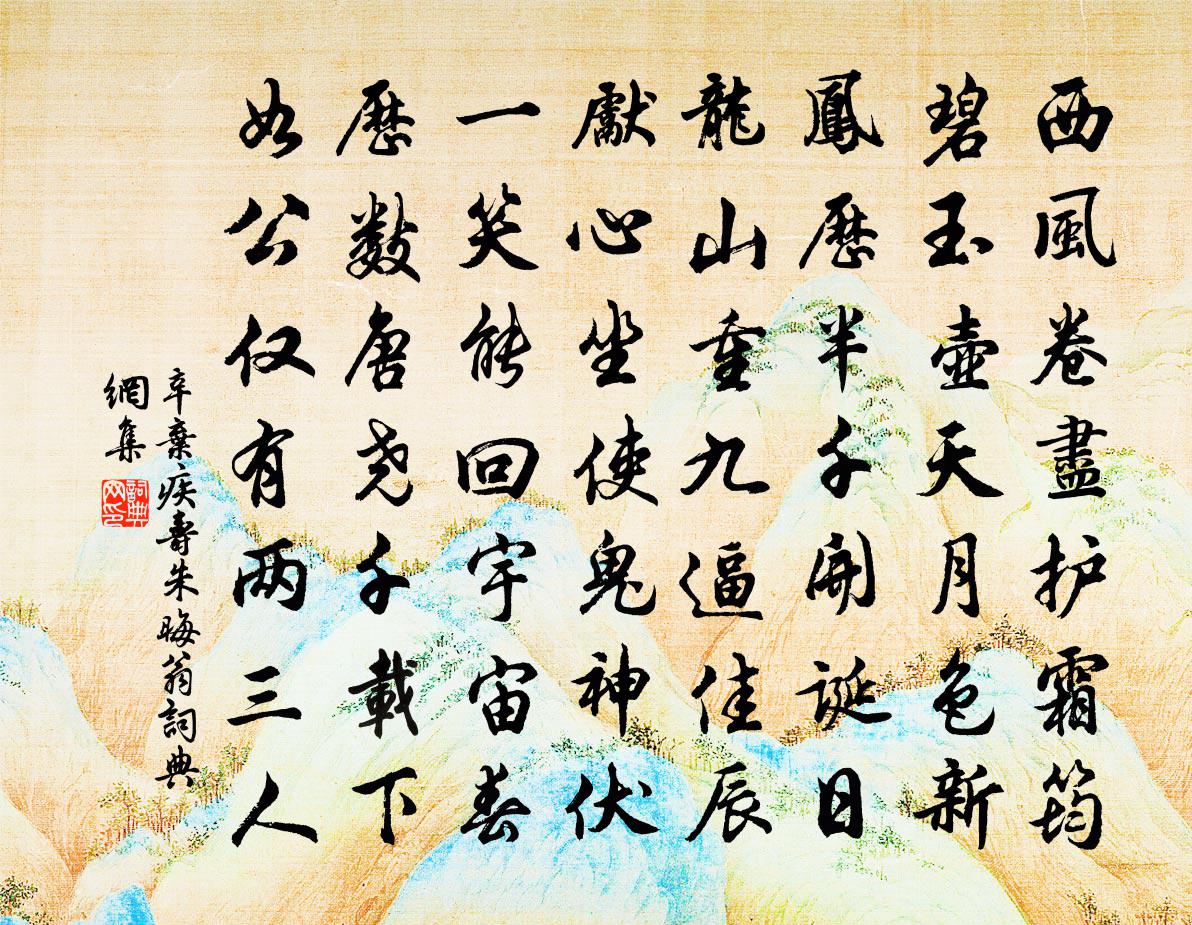 西風卷盡护霜筠
碧玉壺天月色新
鳳歷半千開誕日
龍山重九逼佳辰
獻心坐使鬼神伏
一笑能回宇宙春
歷數唐尧千載下
如公仅有两三人
辛棄疾壽朱晦翁詞典
網集
詞典
网印